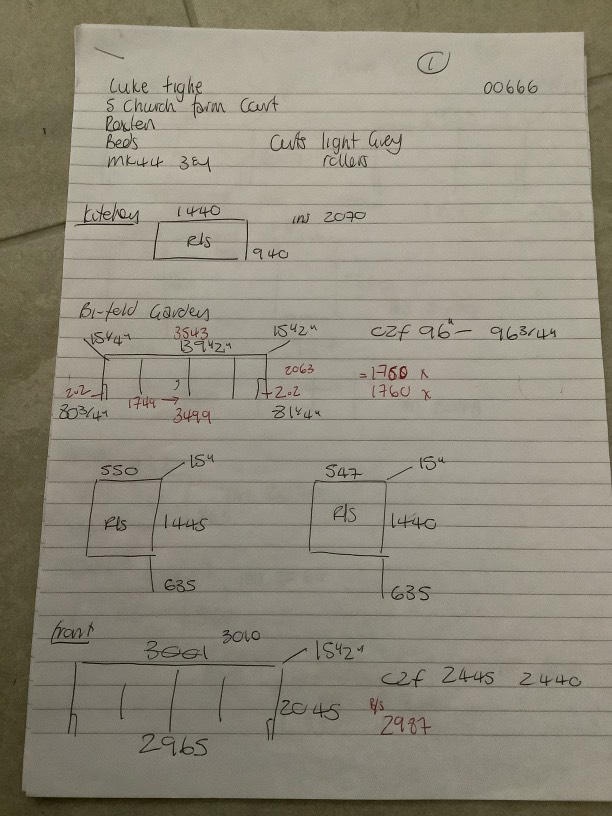 1
00666
Luke tighe
5 Church farm Court
Roxten
Beds
Curts light Grey
mk44 3EY
rollers
Kitchen
1440
ins 2070
R/S
940
Bi-fold Garden
15¼" 3543 15½"
139½"
c2f 96" - 96¾"
2063
=1760 x
202 1744 → 202
1760 x
80¾" 3499 81¼"
550 15" 547 15"
R/S 1445 R/S 1440
635 635
front
3001 3010 15½"
c2f 2445 2440
2045
R/S
2987
2965